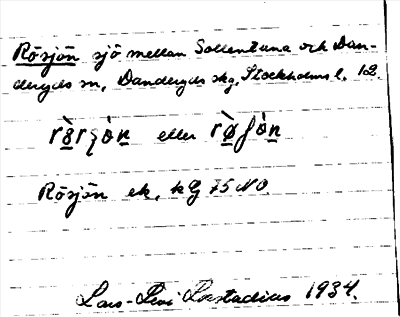 Rösjön sjö mellan Sollentuna och Dan-
deryds sn, Danderyds skg, Stockholms l. 12.
eller
Rösjön ek. kg 75 NO
Lars-Levi Læstadius 1934.